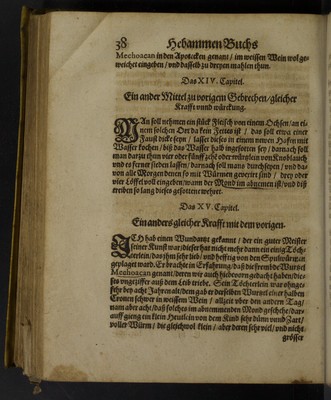 38 Hebammen Buchs
Mechoacan in den Apotecken genant / im weissen Wein wol ge-
weichet eingeben / vnd dasselb zu dreyen mahlen thun.
Das XIV. Capitel.
Ein ander Mittel zu vorigem Gebrechen / gleicher
Krafft vnnd würckung.
MAn soll nehmen ein stück Fleisch von einem Ochsen / an ei-
nem solchen Ort da kein Fettes ist / das soll etwa einer
Faust dicke seyn / lasset dieses in einem newen Hafen mit
Wasser kochen / biß das Wasser halb ingesotten sey / darnach soll
man darzu thun vier oder fünff von Knoblauch
vnd es ferner sieden lassen / darnach soll mans durchseyen / vnd da-
von alle Morgen denen so mit Würmen geveirt sind / drey oder
vier Löffel voll eingeben / wann der Mond im abnemen ist / vnd diß
treiben so lang dieses gesottene wehret.
Das XV. Capitel.
Ein anders gleicher Krafft mit dem vorigen.
ICH hab einen Wundartzt gekannt / der ein guter Meister
seiner Kunst war / dieser hat nicht mehr dann ein einig Töch-
terlein / das jhm sehr lieb / vnd hefftig von den Spulwürmen
geplaget ward. Er brachte in Erfahrung / daß die frembde Wurtzel
Mechoacan genant / deren wir auch hiebevorn gedacht haben / die-
ses vngeziffer auß dem Leib triebe. Sein Töchterlein war ohnge-
fehr bey acht Jahren alt / dem gab er derselben Wurtzel einer halben
Cronen schwer in weissem Wein / allzeit vber den andern Tag /
nam aber acht / daß solches im abnemmenden Mond geschehe / dar-
auff gieng ein klein Heutlein von dem Kind sehr dünn vnnd Zart /
voller Würm / die gleichwol klein / aber deren sehr viel / vnd nicht
grösser